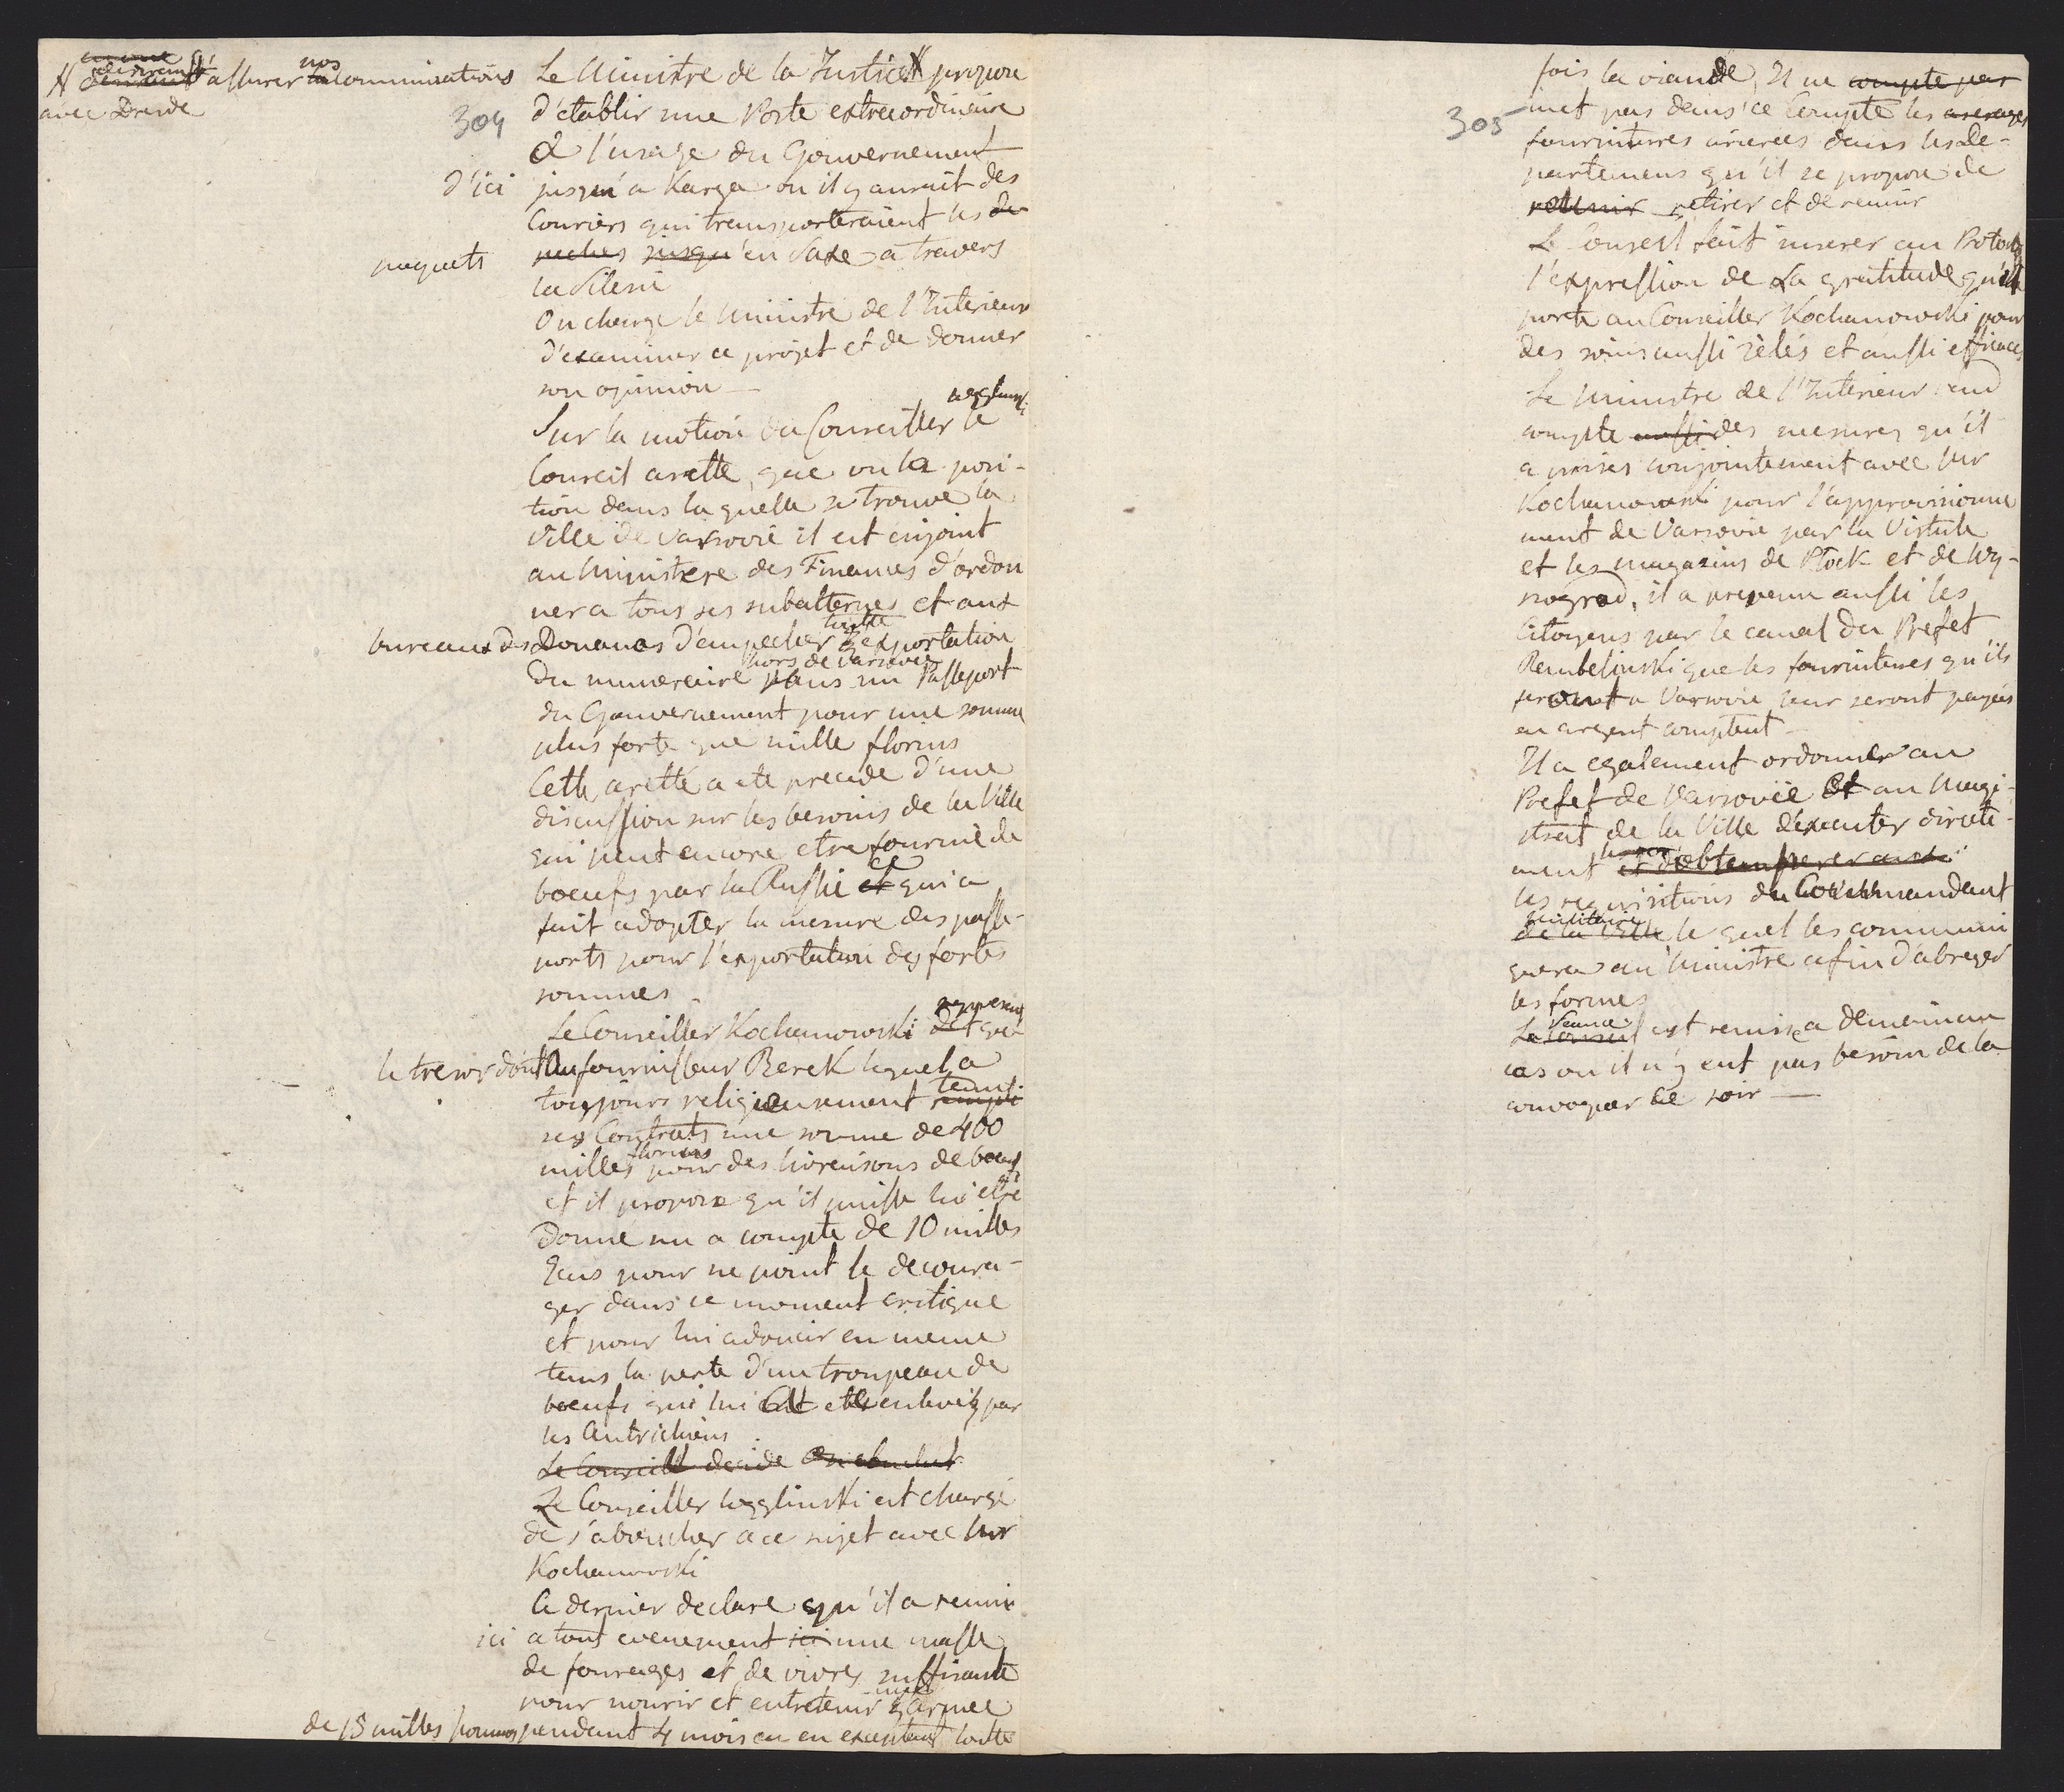 H desirant d'assurer nos communications
avec Dresde
304
Le Ministre de la Justice H propose
d'etablir une Poste extraordinaire
a l'usage du Gouvernement
d'ici jusqu'a Karga ou il y aurait des
Couriers qui transporteraient les de
paquets peches jusqu'en Saxe a travers
la Silesie
On charge le Ministre de l'Interieur
d'examiner ce projet et de donner
son opinion —
Sur la motion du Conseiller Węgliński le
Conseil arette, que vu la posi-
tion dans laquelle se trouve la
Ville de Varsovie il est enjoint
au Ministere des Finances d'ordon
ner a tous ses subalternes et aux
bureaux des Douanes d'empecher toutte exportation
du numeraire hors de Varsovie sans un Passeport
du Gouvernement pour une somme
plus forte que mille florins
Cette arette a ete precede d'une
discussion sur les besoins de la Ville
qui peut encore etre fournie de
boeufs par la Russie et ce qui a
fait adopter la mesure des passe-
ports pour l'exportation des fortes
sommes.
Le Conseiller Kochanowski dit que
le tresor doit au fournisseur Berek lequel a
toujours religieusement rempli tenu
ses Contrats une somme de 400
milles florins pour des livraisons de boeufs
et il propose qu'il puisse lui etre
donné un a compte de 10 milles
Ecus pour ne point le decoura-
ger dans ce moment critique
et pour lui adoucir en meme
tems la perte d'un troupeau de
boeufs qui lui ont eté enlevés par
les Autrichiens
Le Conseil decide
Le Conseiller Węgliński est chargé
de s'aboucher a ce sujet avec Mr
Kochanowski
Ce dernier declare qu'il a reuni
ici a tout evenement ici une masse
de fourages et de vivres suffisante
pour nourir et entretenir une armee
de 15 milles hommes pendant 4 mois en en exceptant toutte
305
fois la viande, Il ne compte pas
met pas dans ce Compte les
fournitures arierees dans les De-
partemens qu'il se propose de
retirer et de reunir
Le Conseil fait inserer au Protocole
l'expression de La gratitude qu'il
porte au Conseiller Kochanowski pour
des soins aussi zélés et aussi efficaces
Le Ministre de l'Interieur rend
compte aussi des mesures qu'il
a prises conjointement avec Mr
Kochanowski pour l'approvisionne
ment de Varsovie par la Vistule
et les magazins de Płock et de Wy-
szogrod, il a prevenu aussi les
Citoyens par le canal du Prefet
Rembelinski que les fournitures qu'ils
feront a Varsovie leur seront payées
en argent comptent —
Il a egalement ordonné au
Prefet de Varsovie et au Magi-
strat de la Ville d'executer directe-
ment et d'obtemperer aux
les requisitions du Commandant
de la Ville militaire le quel les communi
quera au Ministre afin d'abreger
les formes
Le Conseil Seance est remise a demain au
cas ou il n'y eut pas besoin de la
convoquer ce soir —